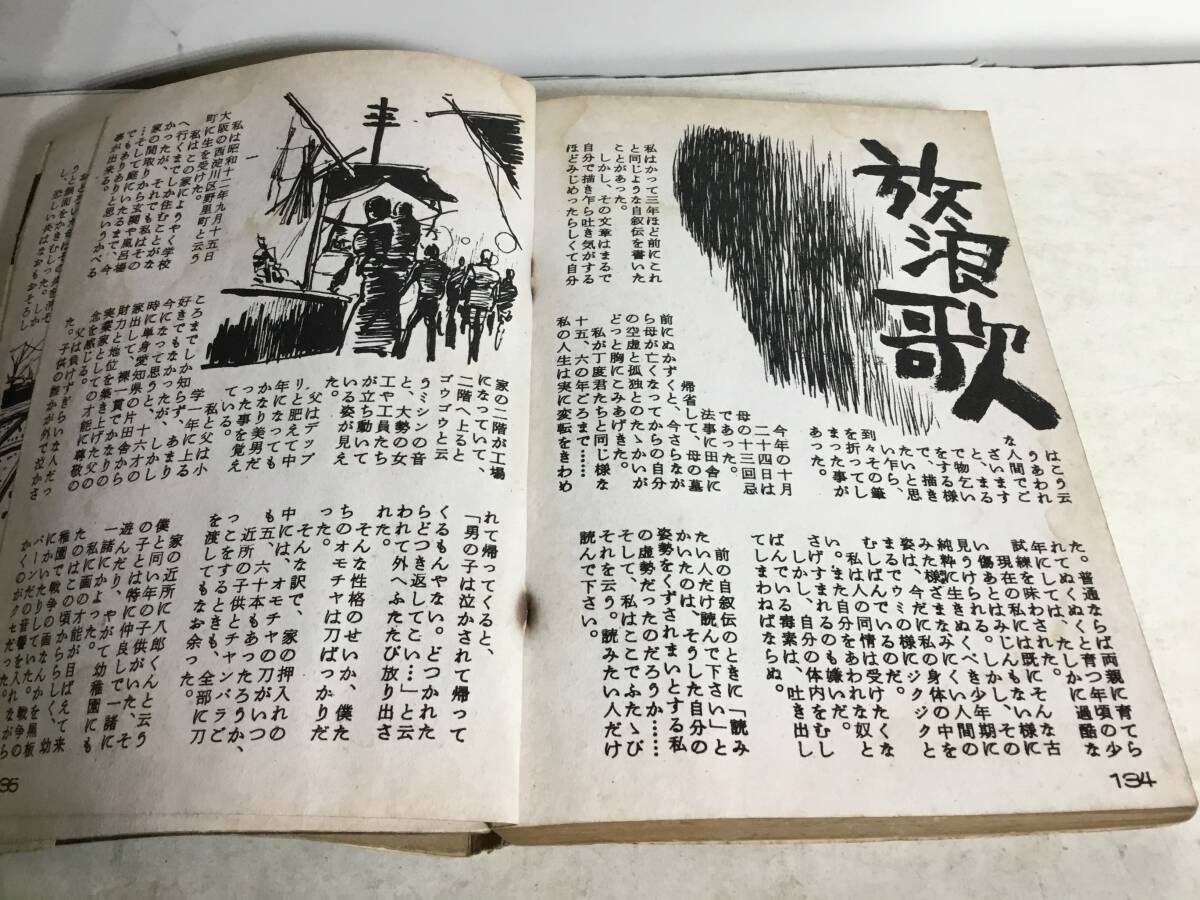 放浪歌
私はかって三年ほど前にこれ
と同じような自叙伝を書いた
ことがあった。
しかし、その文章はまるで
自分で描き乍ら吐き気がする
ほどみじめったらしくて自分
はこう云
うあわれ
な人間でご
ざいます
と、まる
で物乞い
をする様
で、描き
たいと思
い乍ら、
到々その筆
を折ってし
まった事が
あった。
今年の十月
二十四日は
母の十三回忌
であった。
法事に田舎に
帰省して、母の墓
前にぬかずくと、今さらなが
ら母が亡くなってからの自分
の空虚と孤独とのたゝかいが
どっと胸にこみあげきた。
私が丁度君たちと同じ様な
十五、六の年ごろまで……
私の人生は実に変転をきわめ
た。普通ならば両親に育てら
れてぬくぬくと育つ年頃の少
年にしては、たしかに過酷な
試練を味わされた。
現在の私には既にそんな古
い傷あとはみじんもない様に
見うけられる。しかし、その
純粋に生きぬくべき少年期に
みた様ざまなみにくい人間の
姿は、今だに私の身体の中を
まるでウミの様にジクジクと
むしばんでいるのだ。
私は人の同情は受けたくな
い。また自分をあわれな奴と
さげすまれるのも嫌いだ。
しかし、自分の体内をむし
ばんでいる毒素は、吐き出し
てしまわねばならぬ。
前の自叙伝のときに「読み
たい人だけ読んで下さい」と
かいたのは、そうした自分の
姿勢をくずされまいとする私
の虚勢だったのだろうか……
そして、私はここでふたゝび
それを云う。読みたい人だけ
読んで下さい。
134
一
私は昭和十二年九月十五日
大阪の西淀川区野里町と云う
町に生を受けた。
私はこの家にようやく学校
へ行くまでしか住むことがな
かったが、それでも私はその
家の間取りから玄関や風呂場
…そして庭にいたるまで、今
でもありありと思いうかべる
事が出来る。
家の二階が工場
になっていて、
二階へ上ると
ゴウゴウと云
うミシンの音
と、大勢の女
工や工員たち
が立ち動いて
いる姿が見え
た。
父はデップ
りと肥えて中
年になっても
かなり美男だ
った事を覚え
ている。
私と父は小
学一年に上る
ころまでしか知らず、あまり
好きでもなかったが、しかし
今になって思うと、十六才の
時に単身愛知県の片田舎から
家出して、裸一貫でかなりの
財力と地位を築き上げた父の
実業家としての才能に尊敬の
念を感じる。
父は負けずぎらいな人だっ
た。子供の誰かが外で泣かさ
れて帰ってくると、
「男の子は泣かされて帰って
くるもんやない。どつかれた
らどつき返してこい…」と云
われて外へふたたび放り出さ
れた。
そんな性格のせいか、僕た
ちのオモチャは刀ばっかりだ
った。
そんな訳で、家の押入れの
中には、オモチャの刀がいつ
も五、六十本もあったろうか、
近所の子供とチャンバラご
っこをするときも、全部に刀
を渡してもなお余った。
家の近所に八郎くんと云う
僕と同い年の子供がいた、そ
の子とは特に仲良しで一諸に
遊んだり、やがて幼稚園にも
一諸にかよった。
私に画の才能が目ばえて来
たのはこの頃かららしく、幼
稚園で戦争の画なんかを黒板
にかいたりしていた。